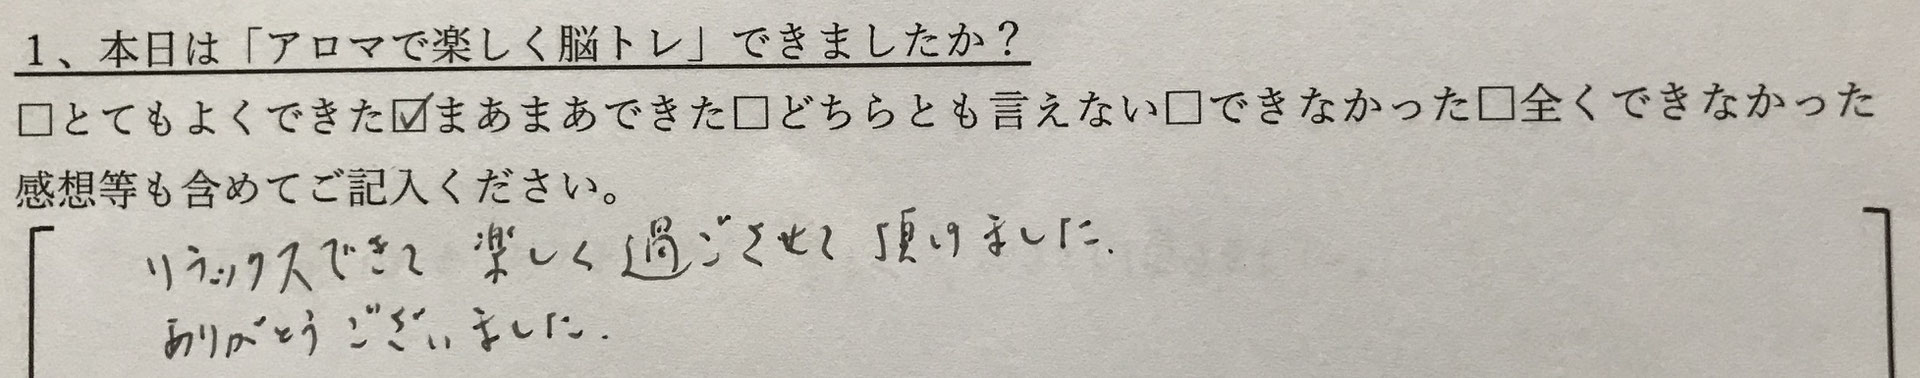 1、本日は「アロマで楽しく脳トレ」できましたか？
□とてもよくできた☑まあまあできた□どちらとも言えない□できなかった□全くできなかった
感想等も含めてご記入ください。
リラックスできて 楽しく過ごさせて頂けました.
ありがとうございました.